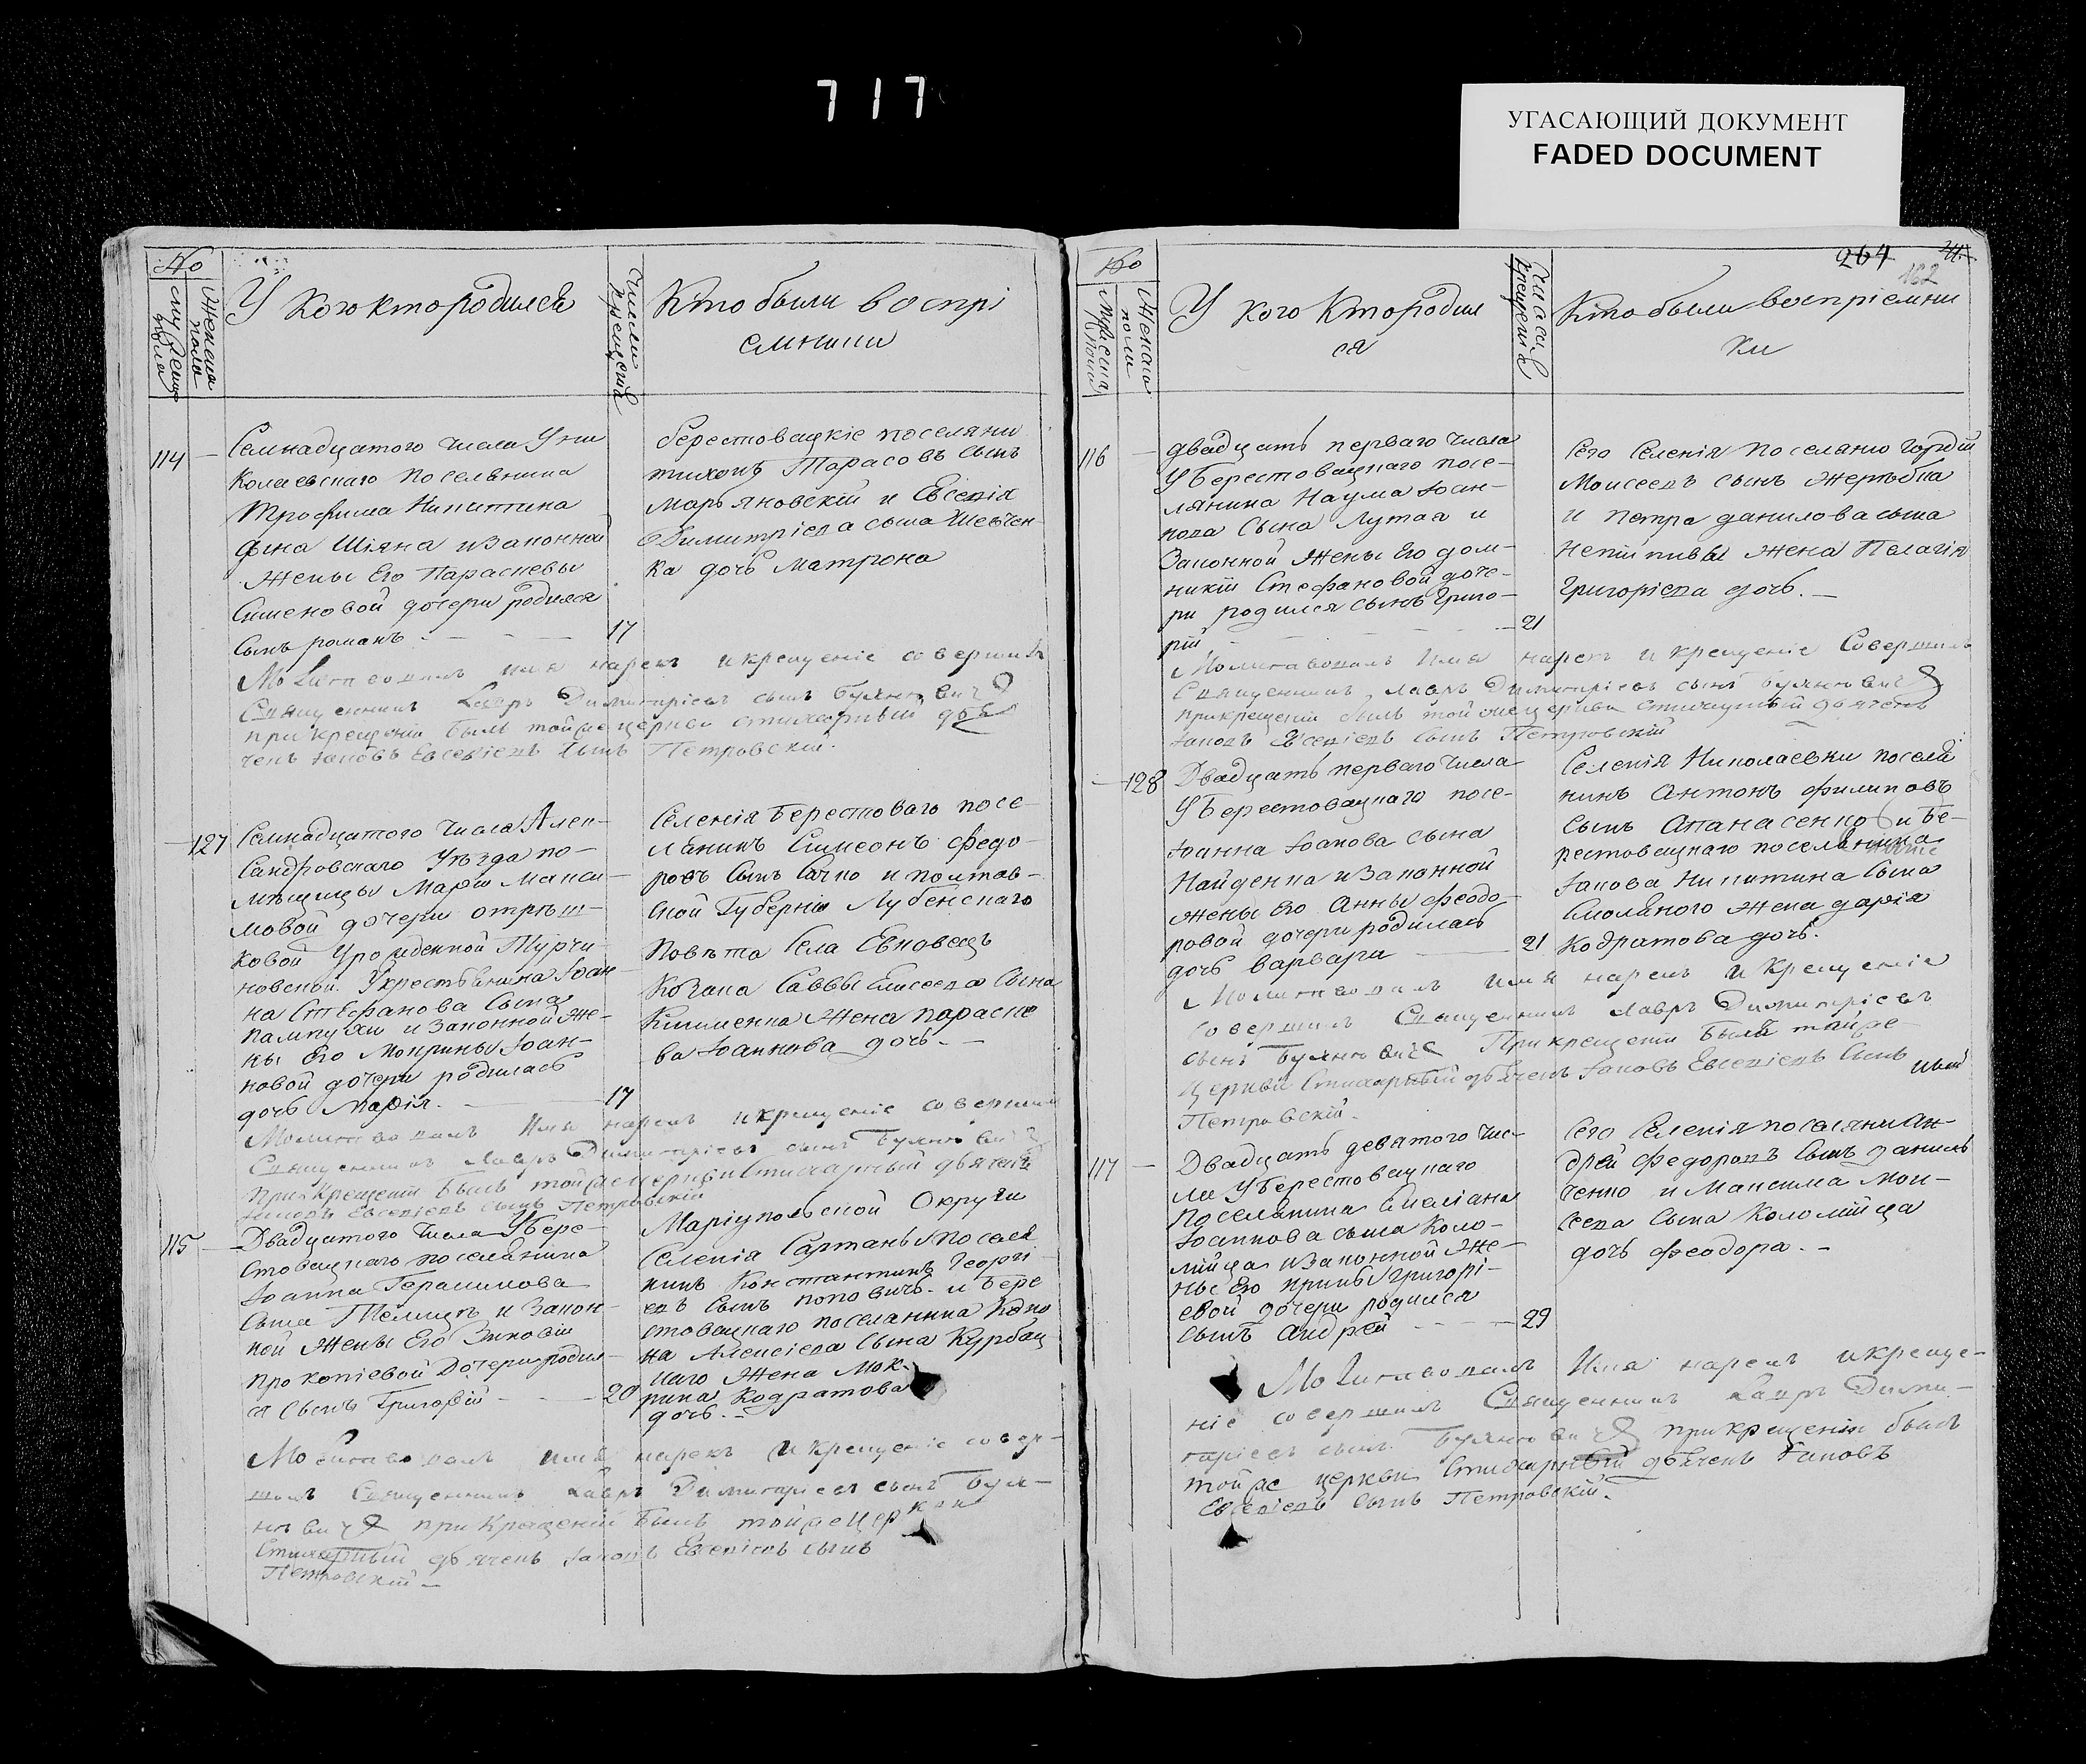 717
УГАСАЮЩИЙ ДОКУМЕНТ
FADED DOCUMENT
No
Женска пола
У кого кто родился
Число крещенія
Кто были воспрі
емники
114
Семнадцатого числа У ни
колаевскаго поселянина
Трофима Никитина
сына Шіяна и законной
жены Его Параскевы
Симеоновой дочери родился
сынъ романъ.
17
берестовацкіе поселяни
тихонъ Тарасовъ сынъ
марьяновскій и Евсевія
Димитріева сына Шевчен
ка дочь матрона
Молитвовалъ имя нарекъ и крещеніе совершилъ
Священникъ Лавръ Димитріевъ сынъ
при крещеніи былъ тойже церкви стихарный дья
чекъ Іаковъ Евсевіевъ сынъ Петровскій.
127
Семнадцатого числа Алек-
сандровскаго Уѣзда по-
мѣщицы Маріи Макси-
мовой дочери отрѣш-
ковой Урожденной Турчи-
новской. У крестьянина Іоан
на Стефанова Сына
пампухи и законной же-
ны Его Мокрины Іоан-
новой дочери родилась
дочь Марія.
17
Селенія берестоваго посе-
лянинъ Симеонъ федо-
ровъ сынъ Сачко и полтав-
ской Губерніи Лубенскаго
Повѣта Села Евковецъ
козака Саввы Елисеева Сына
Клименка Жена параске
ва Іоаннова дочь.-
Молитвовалъ Имя нарекъ и крещеніе совершилъ
Священникъ Лавръ Димитріевъ сынъ
при крещеніи былъ тойже церкви Стихарный дьячекъ
Іаковъ Евсевіевъ сынъ Петровскій
115
Двадцатого числа У бере-
стовацкаго поселянина
Іоанна Герасимова
сына Телицъ и закон
ной жены Его Зиновіи
прокопіевой дочери родил-
ся сынъ Григорій
20
Маріупольской Округи
Селенія Сартаны посел
нинъ Константинъ Георгі
евъ сынъ поповичъ. и бере
стовацкаго поселянина Коно
на Алексіева Сына Курбац
каго жена Мок-
рина Кодратова
дочь.-
Молитвовалъ имя нарекъ и крещеніе совер-
шилъ Священникъ Лавръ Димитріевъ сынъ
при крещеніи былъ тойже церкви
Стихарный дьячекъ Іаковъ Евсевіевъ сынъ
Петровскій-
No
264
162
У кого кто родил
ся
Кто были воспріемни
ки
116
двадцать перваго числа
У берестовацкаго посе-
лянина Наума Іоан-
нова Сына Лутая и
законной жены Его дом-
никіи Стефановой доче-
ри родился сынъ Григо-
рій
21
Сего Селенія поселянин Гордій
Моисеевъ сынъ жеребка
и петра данилова сына
непійпивы жена Пелагія
Григоріева дочь.-
Молитвовалъ Имя нарекъ и крещеніе Совершилъ
Священникъ Лавръ Димитріевъ сынъ
при крещеніи былъ тойже церкви стихарный дьячекъ
Іаковъ Евсевіевъ сынъ Петровскій
128
Двадцать перваго числа
У берестовацкаго посе-
Іоанна Іоакова сына
Найденка и законной
жены Его Анны феодо-
ровой дочери родилась
дочь варвара
21
Селенія Николаевки поселя
нинъ Антонъ филиповъ
сынъ Апанасенко и бе-
рестовацкаго поселянина
Іакова Никитина Сына
Смоляного жена дарія
Кодратова дочь.
Молитвовалъ имя нарекъ и крещеніе
совершилъ Священникъ Лавръ Димитріевъ
сынъ При крещеніи былъ тойже
церкви Стихарный дьячекъ Іаковъ Евсевіевъ сынъ
Петровскій.
117
Двадцать девятого чис-
ла У берестовацкаго
поселянина Емеліана
Іоаннова сына Коло-
мійца и законной же-
ны Его Ирины Григорі-
евой дочери родился
сынъ андрей
29
Сего Селенія поселянин Ан-
дрей федоровъ сынъ данил
ченко и Максима мои-
сеева сына Коломійца
дочь феодора.-
Молитвовалъ Имя нарекъ и креще-
ніе совершилъ Священникъ Лавръ Дими-
тріевъ сынъ при крещеніи былъ
тойже церкви Стихарный дьячекъ Іаковъ
Евсевіевъ сынъ Петровскій.